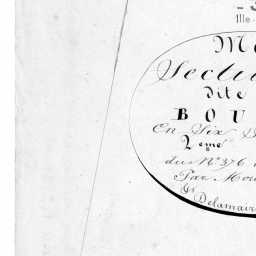 Section
dite
BOU
En Six
2eme
du N° 376
Par Mon
Delamair